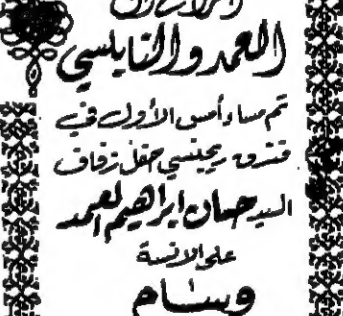 العمد والنابلسي
تم مساء أمس الأول في
فندق ريجينسي حفل زفاف
السيد حسان ابراهيم العمد
على الانسة
وسام